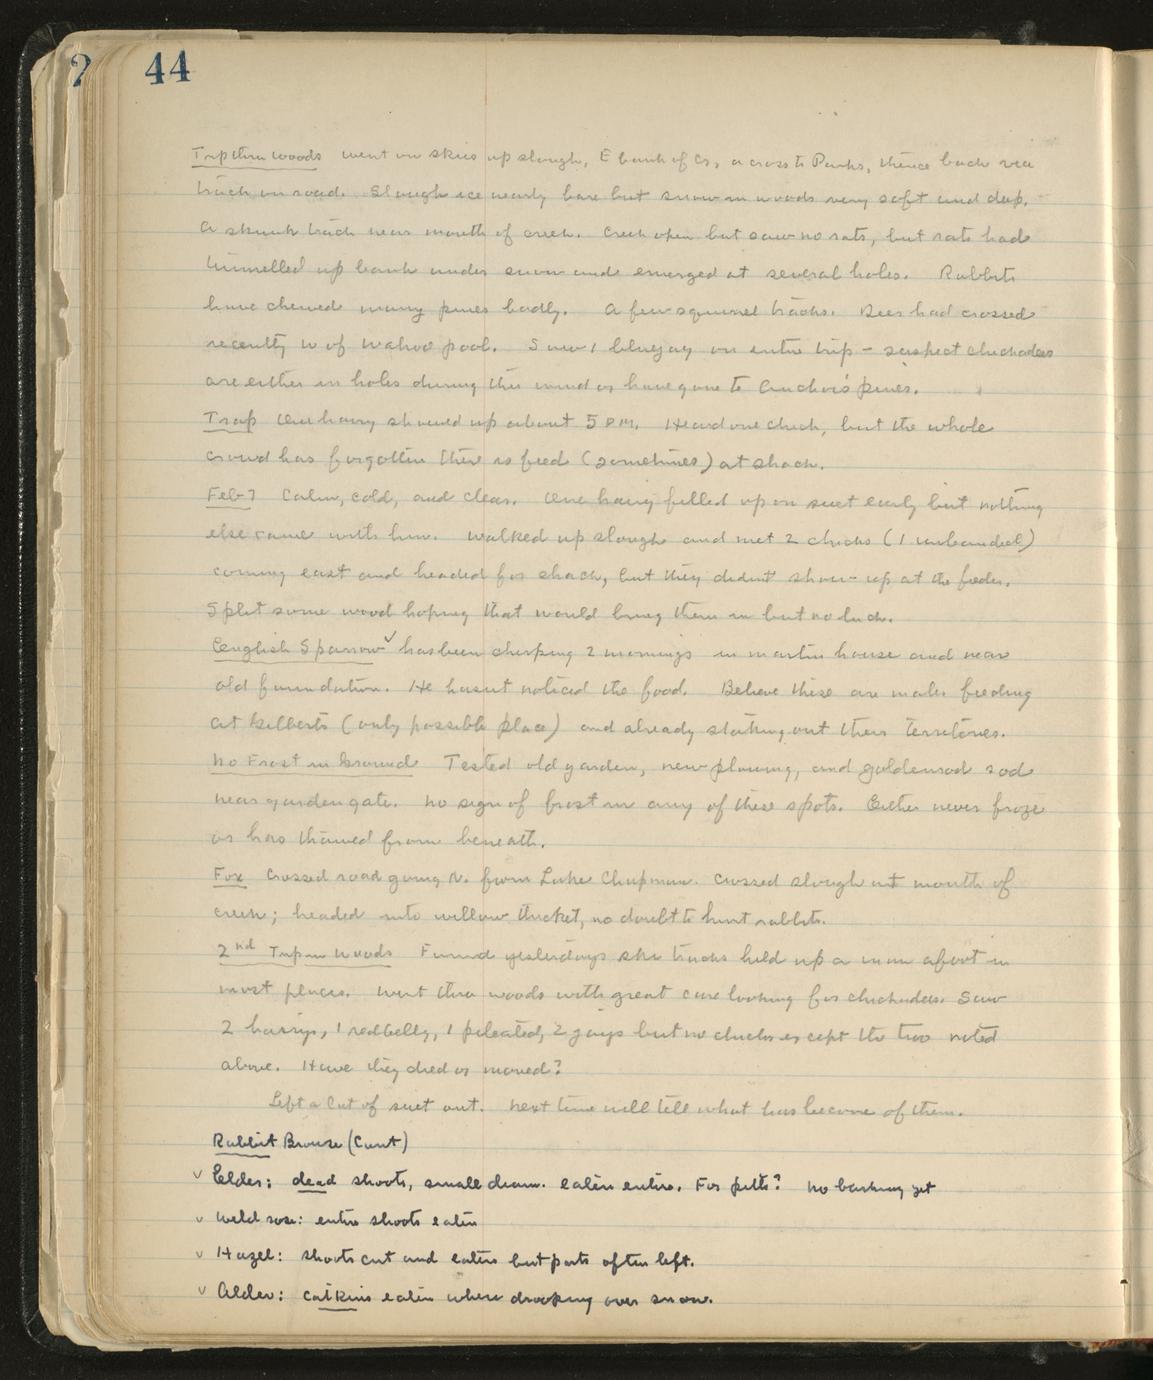 44
Trip thru woods went on skies up slough, E bank of Cr, across to Parks, thence back via
track on road. Slough ice nearly bare but snow in woods very soft and deep.
A skunk track near mouth of creek. Creek open but saw no rats, but rats had
tunnelled up bank under snow and emerged at several holes. Rabbits
have chewed many pines badly. A few squirrel tracks. Deer had crossed
recently W of Wahoo pool. Saw 1 bluejay on entire trip - suspect chickadees
are either in holes during this wind or have gone to Anchor's pines.
Trap One hairy showed up about 5 PM. Heard one chick, but the whole
crowd has forgotten there is feed (sometimes) at shack.
Feb 7 Calm, cold, and clear. One hairy filled up on suet early but nothing
else came with him. Walked up slough and met 2 chicks (1 unbanded)
coming east and headed for shack, but they didn't show up at the feeder.
Split some wood hoping that would bring them in but no luck.
English Sparrow ✓ has been chirping 2 mornings in martin house and near
old foundation. He hasnt noticed the food. Believe these are males feeding
at Gilberts (only possible place) and already staking out their territories.
No Frost in Ground Tested old garden, new plowing, and goldenrod sod
near garden gate. No sign of frost in any of these spots. Either never froze
or has thawed from beneath.
Fox Crossed road going N. from Lake Chapman. Crossed slough at mouth of
creek; headed into willow thicket, no doubt to hunt rabbits.
2nd Trip in Woods Found yesterdays ski tracks held up a man afoot in
most places. Went thru woods with great care looking for chickadees. Saw
2 hairys, 1 redbelly, 1 pileated, 2 jays but no chicks except the two noted
above. Have they died or moved?
Left a lot of suet out. Next time will tell what has become of them.
Rabbit Browse (Cont)
✓ Elder: dead shoots, small diam. eaten entire. For pith? No barking yet
✓ Wild rose: entire shoots eaten
✓ Hazel: shoots cut and eaten but parts often left.
✓ Alder: catkins eaten where drooping over snow.